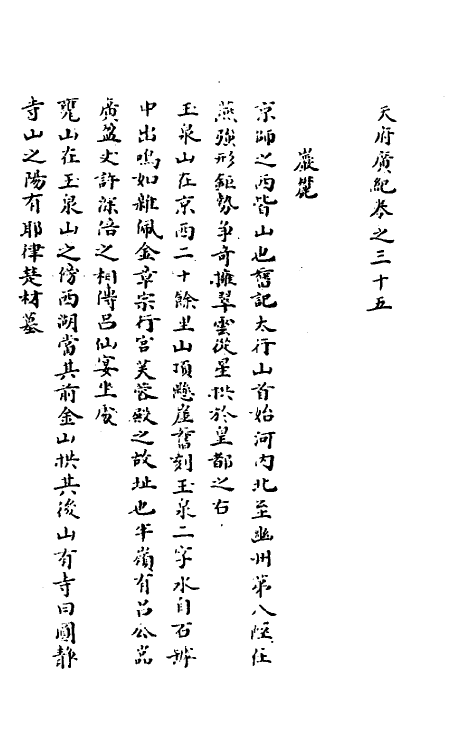 天府廣紀卷之三十五
巖麓
京師之西皆山也舊記太行山首始河内北至幽州第八陘在
燕強形鉅勢爭奇擁翠雲從星拱於皇都之右
玉泉山在京西二十餘里山頂懸崖舊刻玉泉二字水自石罅
中出鳴如雜佩金章宗行宫芙蓉殿之故址也半嶺有吕公岩
廣盈丈許深倍之相傳吕仙宴坐處
甕山在玉泉山之傍西湖當其前金山拱其後山有寺曰圓静
寺山之陽有耶律楚材墓